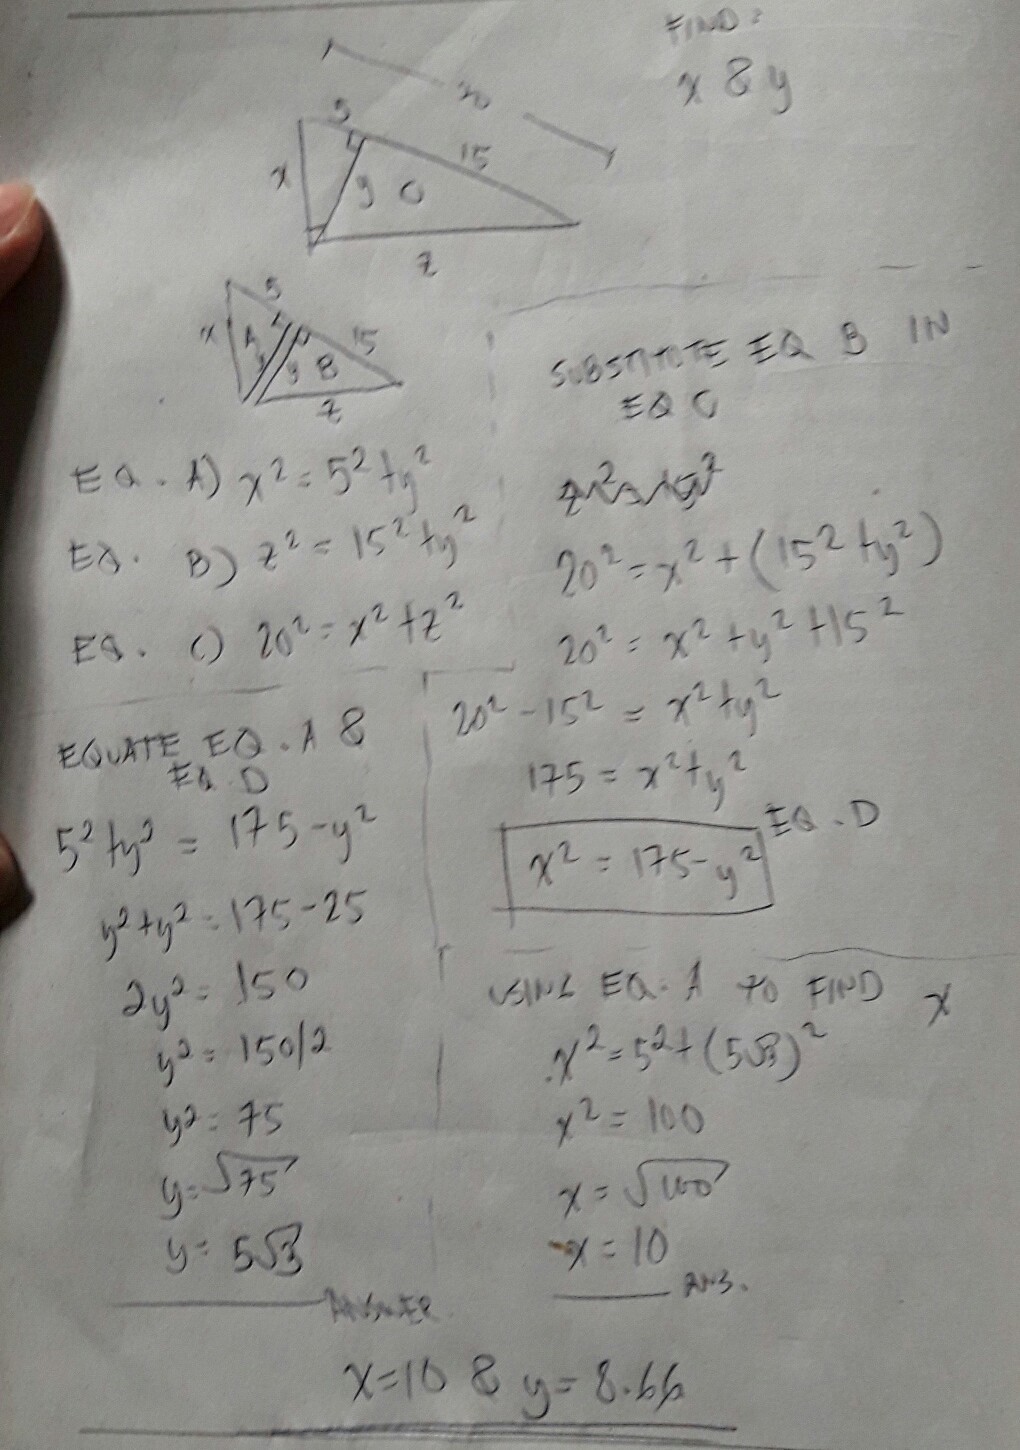 FIND:
x & y
20
5
15
x
y
C
z
5
x
A
15
y
y
B
z
EQ. A) x² = 5² + y²
EQ. B) z² = 15² + y²
EQ. C) 20² = x² + z²
SUBSTITUTE EQ B IN
EQ C
20² = x² + (15² + y²)
20² = x² + y² + 15²
20² - 15² = x² + y²
175 = x² + y²
x² = 175 - y²
EQ. D
EQUATE EQ. A &
EQ. D
5² + y² = 175 - y²
y² + y² = 175 - 25
2y² = 150
y² = 150/2
y² = 75
y = √75
y = 5√3
ANSWER
USING EQ. A TO FIND x
x² = 5² + (5√3)²
x² = 100
x = √100
x = 10
ANS.
x = 10 & y = 8.66